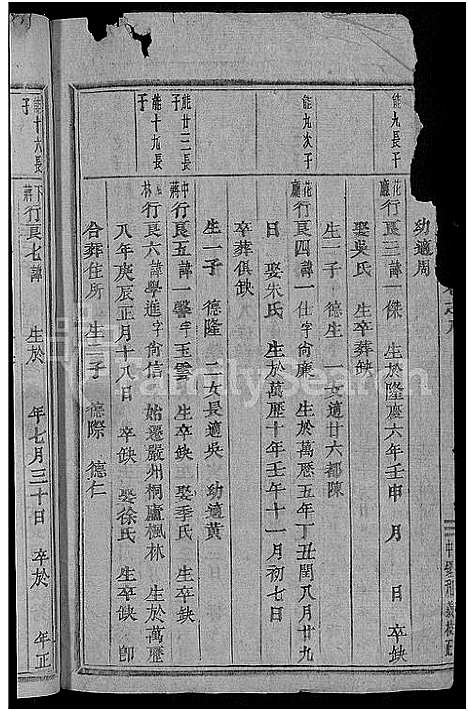 幼適周
能九長子
花廳 行良三諱一傑 生於隆慶六年壬申 月 日 卒缺
娶吳氏 生卒葬缺
生一子 德生 一女適廿六都陳
能九次子
花廳 行良四諱一仕字尙廉 生於萬曆五年丁丑閏八月廿九
日 娶朱氏 生於萬曆十年壬午十一月初七日
卒葬俱缺
生一子 德隆 二女長適吳 幼適黃
能廿三長子
中蔣 行良五諱一馨字玉雲 生卒缺 娶季氏 生卒缺
能十九長子
林 行良六諱學進字尙信 始遷嚴州桐廬楓林 生於萬曆
八年庚辰正月十八日 卒缺 娶徐氏 生卒缺 卽
合葬住所 生二子 德際 德仁
能十六長子
下蔣 行良七諱 生於 年七月三十日 卒於 年正
familysearch